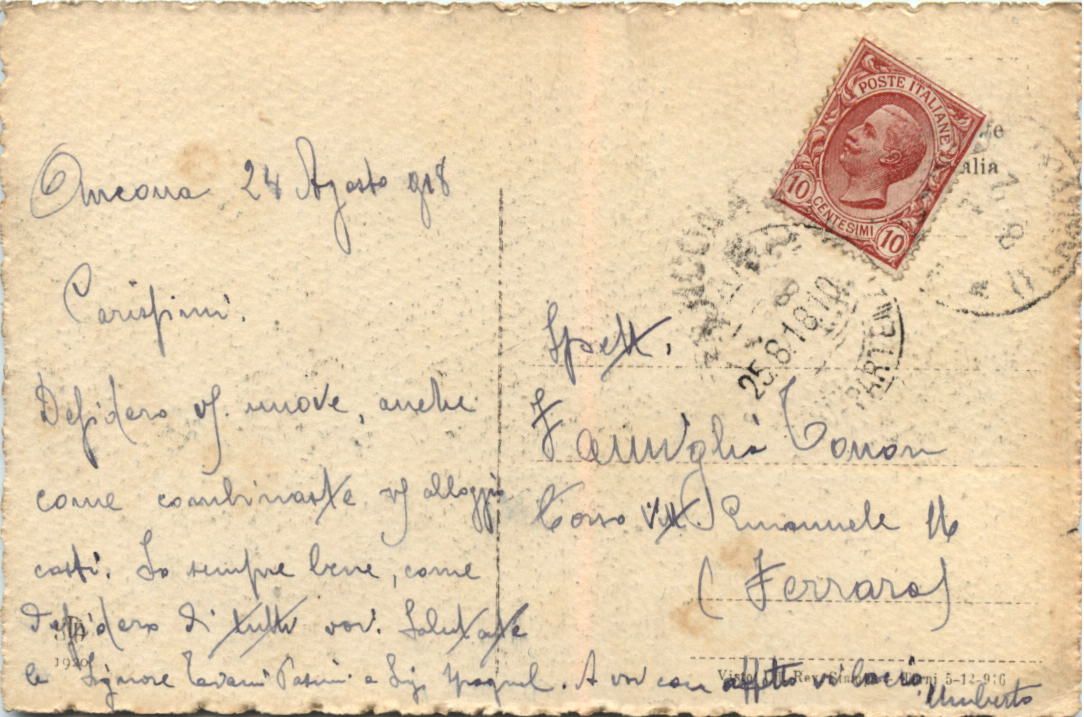 Ancona 24 Agosto 918
Carissimi.
Desidero vs. nuove, anche
come combinaste vs alloggio
costì. Io sempre bene, come
desidero di tutti voi. Salutate
le Signore Pasini e Sig. Spagnol. A voi con affetto vi bacio
Umberto
POSTE ITALIANE
10 CENTESIMI 10
alia
25.8.18.10
Spett.
Famiglia Tonon
Corso Vitt Emanuele 16
(Ferrara)
1920
Visto Uff. Rev. Stampa Terni 5-12-916